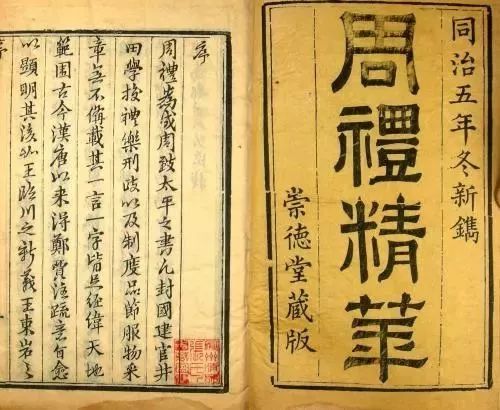 同治五年冬新鐫
周禮精華
崇德堂藏版
序
周禮為成周致太平之書凡封國建官井
田學校禮樂刑政以及制度品節服物采
章無不備載其一言一字皆足經緯天地
範圍古今漢唐以來得鄭賈注疏意旨愈
以顯明其後如王臨川之新義王東岩之
序